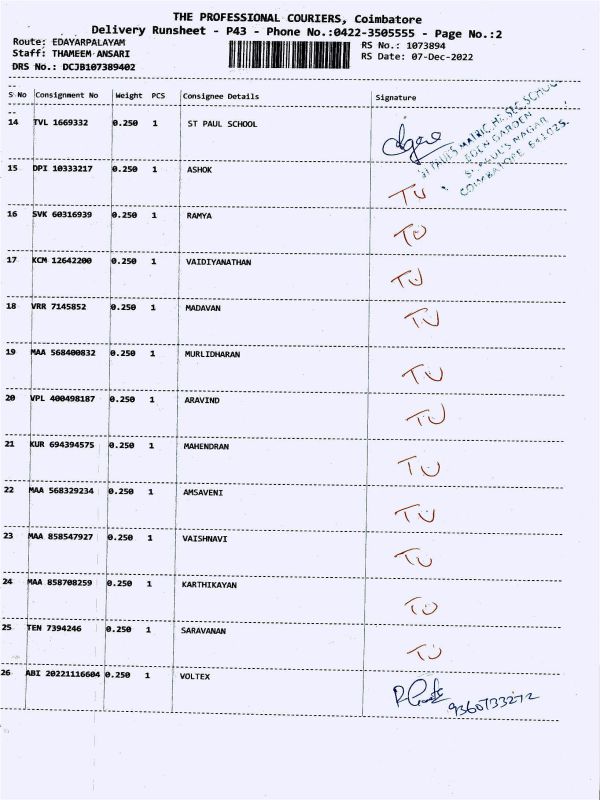 THE PROFESSIONAL COURIERS, Coimbatore
Delivery Runsheet - P43 - Phone No.:0422-3505555 - Page No.:2
Route: EDAYARPALAYAM RS No.: 1073894
Staff: THAMEEM ANSARI RS Date: 07-Dec-2022
DRS No.: DCJB107389402
S No Consignment No Weight PCS Consignee Details Signature
14 TVL 1669332 0.250 1 ST PAUL SCHOOL
ST PAULS MATRIC. HR. SEC. SCHOOL
EDEN GARDEN
ST. PAUL'S NAGAR
COIMBATORE 641025.
15 DPI 10333217 0.250 1 ASHOK TU
16 SVK 60316939 0.250 1 RAMYA TU
17 KCM 12642200 0.250 1 VAIDIYANATHAN TU
18 VRR 7145852 0.250 1 MADAVAN TU
19 MAA 568400832 0.250 1 MURLIDHARAN TU
20 VPL 400498187 0.250 1 ARAVIND TU
21 KUR 694394575 0.250 1 MAHENDRAN TU
22 MAA 568329234 0.250 1 AMSAVENI TU
23 MAA 858547927 0.250 1 VAISHNAVI TU
24 MAA 858708259 0.250 1 KARTHIKAYAN TU
25 TEN 7394246 0.250 1 SARAVANAN TU
26 ABI 20221116604 0.250 1 VOLTEX
9360733272